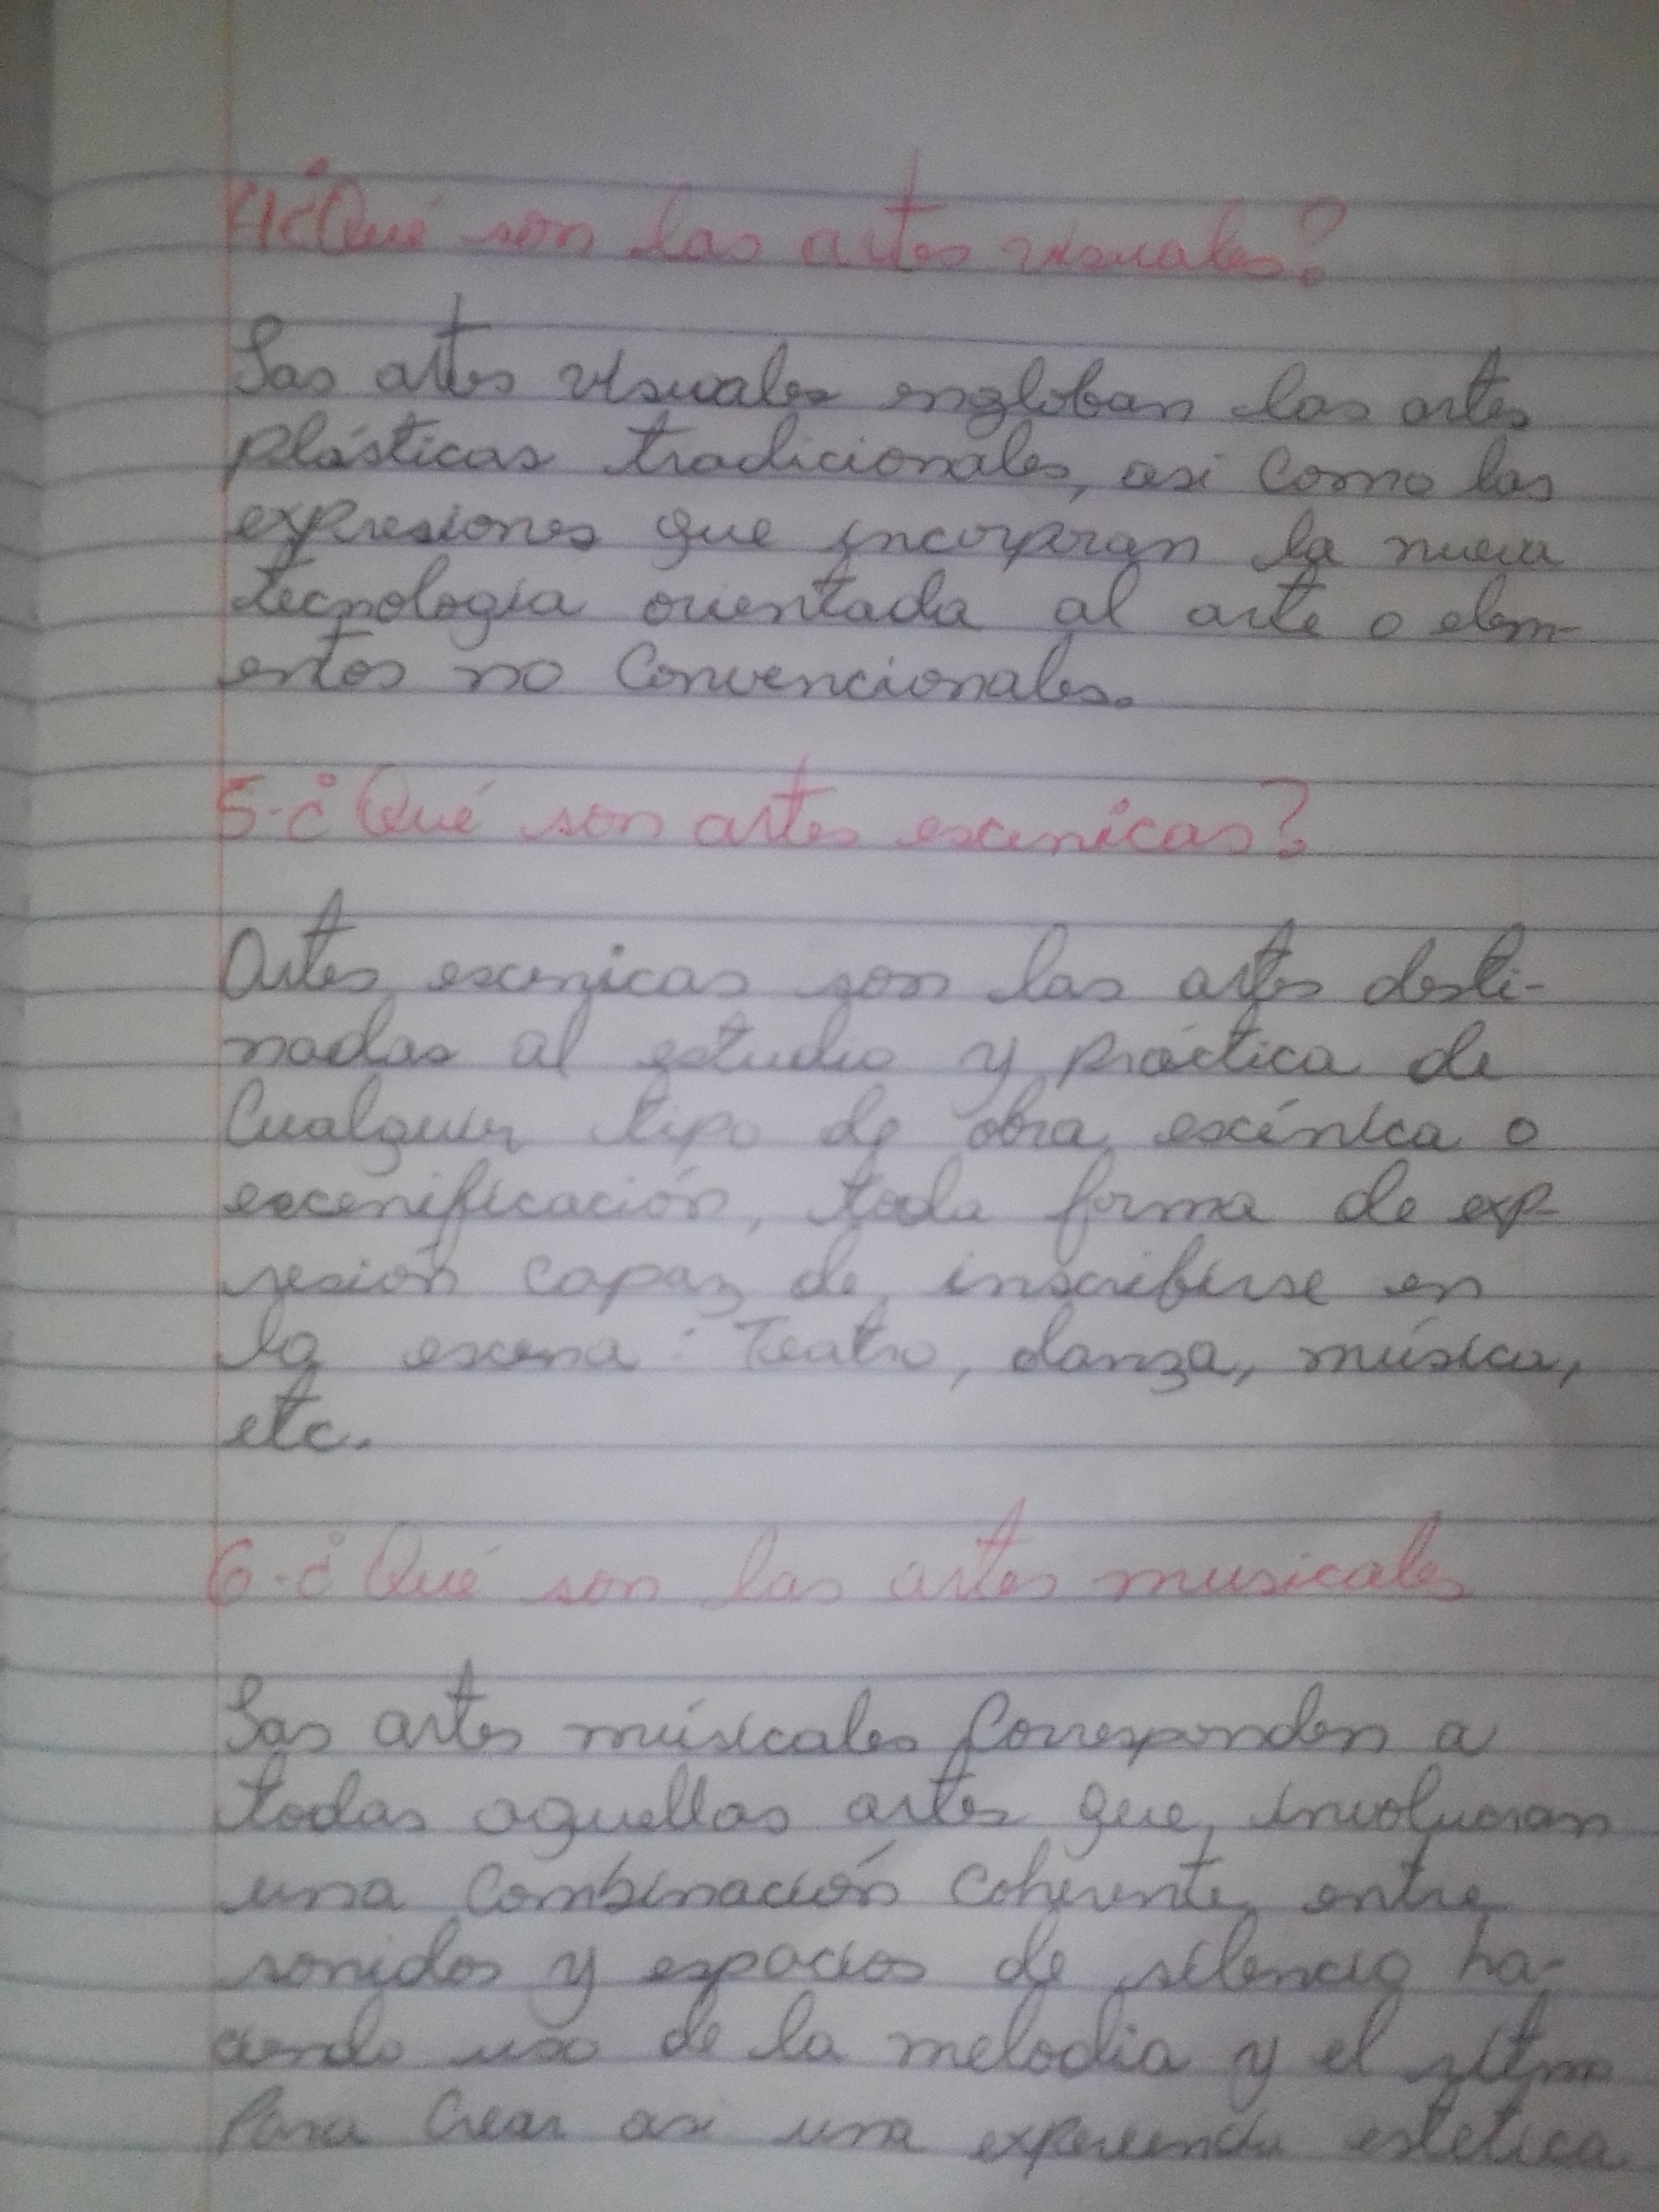 4-¿Qué son las artes visuales?
Las artes visuales engloban las artes
plásticas tradicionales, asi como las
expresiones que incorpran la nueva
tecnologia orientada al arte o elem-
entos no convencionales.
5-¿Qué son artes escenicas?
Artes escenicas son las artes desti-
nadas al estudio y práctica de
cualquier tipo de obra escénica o
escenificación, toda forma de exp-
resión capaz de inscribirse en
la escena: Teatro, danza, música,
etc.
6-¿Qué son las artes musicales
Las artes músicales corresponden a
todas aquellas artes que involucran
una combinación coherente entre
sonidos y espacios de silencio ha-
ciendo uso de la melodia y el ritmo
para crear asi una experiencia estetica